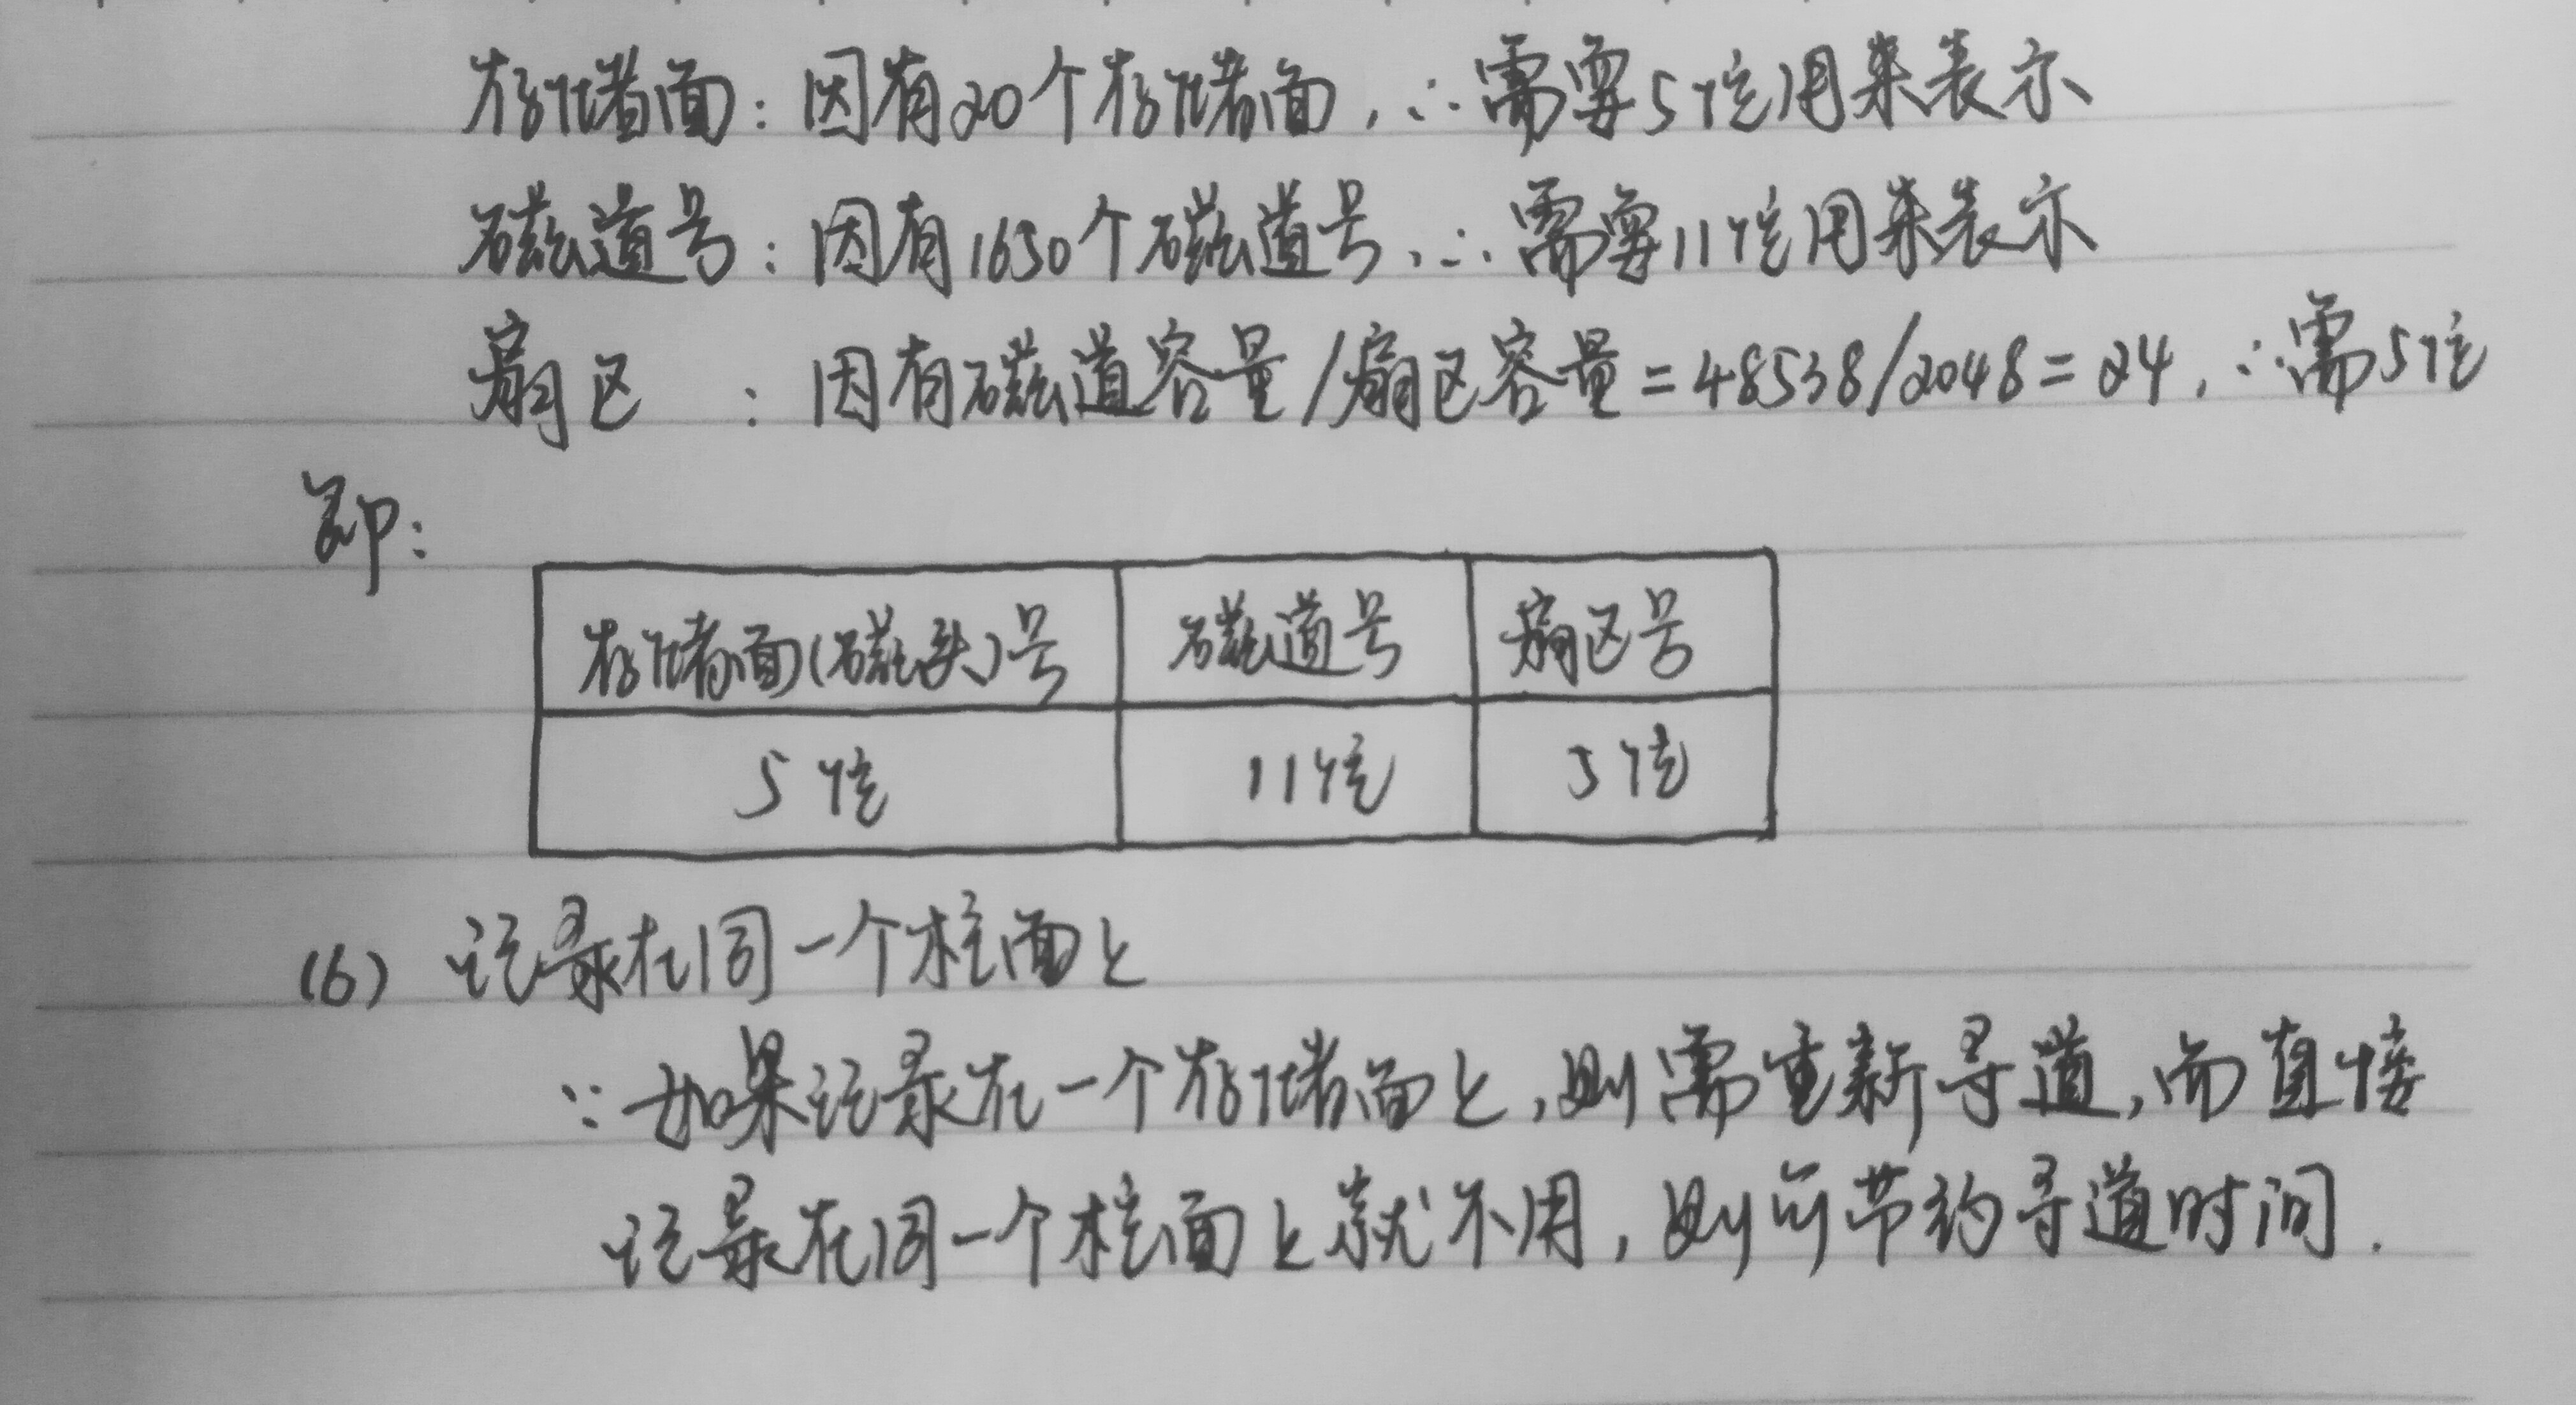 存储面：因有20个存储面，∴需要5位用来表示
磁道号：因有1650个磁道号，∴需要11位用来表示
扇区：因有磁道容量/扇区容量=48538/2048=24，∴需5位
即：
存储面(磁头)号 磁道号 扇区号
5位 11位 5位
(6) 记录在同一个柱面上
∵如果记录在一个存储面上，则需重新寻道，而直接
记录在同一个柱面上就不用，则可节约寻道时间.